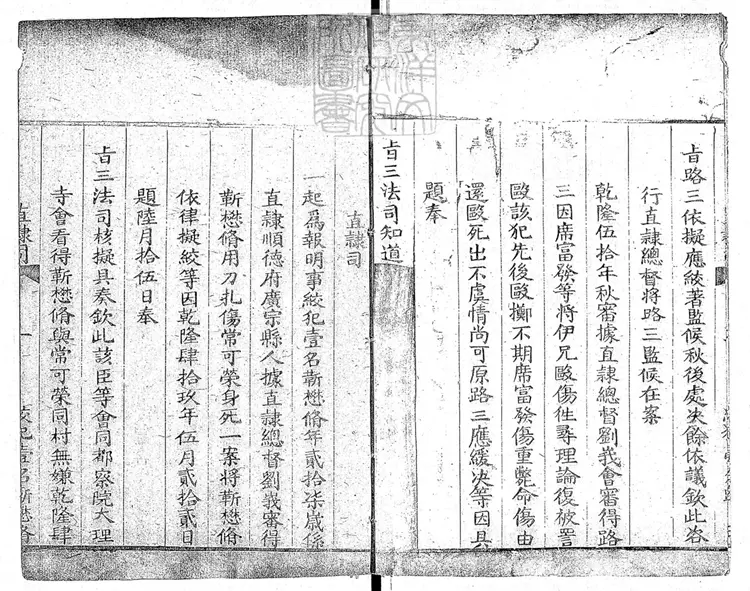 旨路三依擬應絞著監候秋後處決餘依議欽此咨
行直隸總督將路三監候在案
乾隆伍拾年秋審據直隸總督劉峩會審得路
三因席富發等將伊兄毆傷徃尋理論復被詈
毆該犯先後毆擲不期席富發傷重斃命傷由
還毆死出不虞情尚可原路三應緩決等因具
題奉
旨三法司知道
直隸司
一起為報明事絞犯壹名靳懋脩年貳拾柒歲係
直隸順德府廣宗縣人據直隸總督劉峩審得
靳懋脩用刀扎傷常可榮身死一案將靳懋脩
依律擬絞等因乾隆肆拾玖年伍月貳拾貳日
題陸月拾伍日奉
旨三法司核擬具奏欽此該臣等會同都察院大理
寺會看得靳懋脩與常可榮同村無嫌乾隆肆
直隸司
一
絞犯壹名靳懋脩